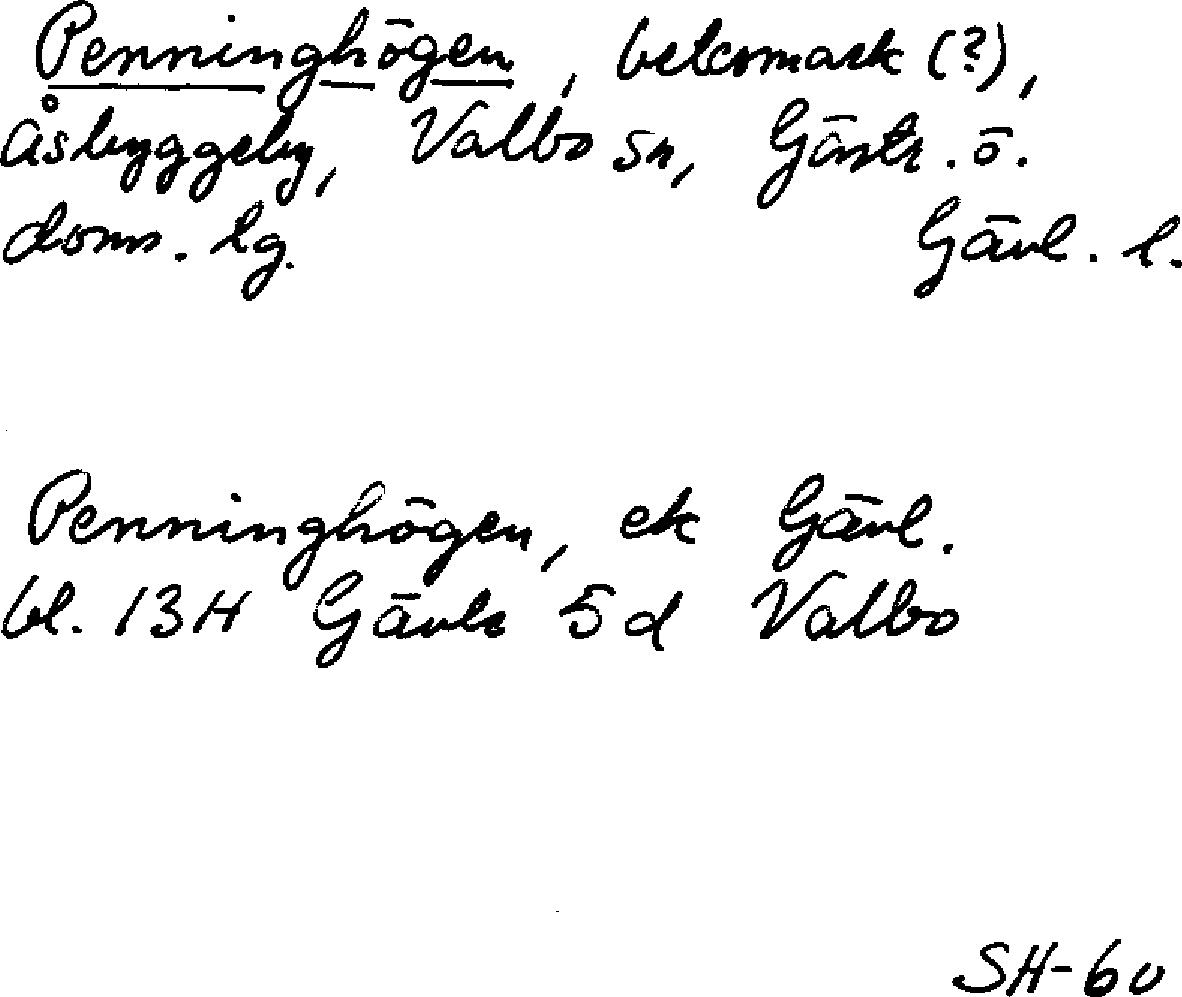 Penninghögen, betesmark (?),
Åsbyggeby, Valbo sn, Gästr. ö.
doms. lg. Gävl. l.
Penninghögen, ek Gävl.
bl. 13H Gävle 5d Valbo
SH-60